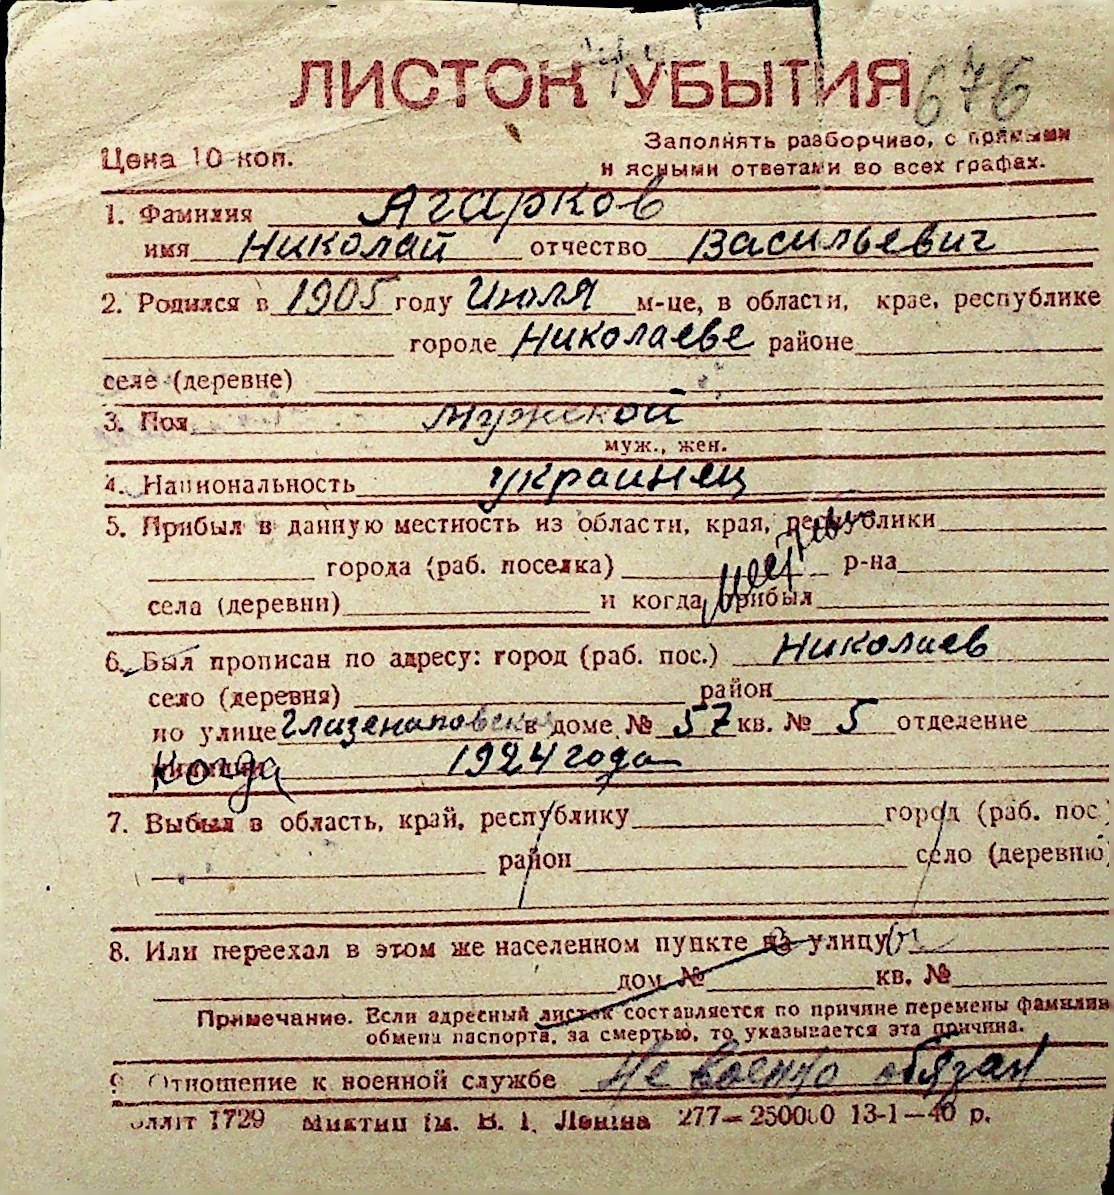 ЛИСТОК УБЫТИЯ 676
Цена 10 коп.
Заполнять разборчиво, с прямыми
и ясными ответами во всех графах.
1. Фамилия Агарков
имя Николай отчество Васильевич
2. Родился в 1905 году Июля м-це, в области, крае, республике
городе Николаеве районе
селе (деревне)
3. Пол мужской
муж., жен.
4. Национальность украинец
5. Прибыл в данную местность из области, края, республики
города (раб. поселка) р-на
села (деревни) и когда прибыл
6. Был прописан по адресу: город (раб. пос.) Николаев
село (деревня) район
по улице Глазенаповская в доме № 57 кв. № 5 отделение
Когда 1924 года
7. Выбыл в область, край, республику город (раб. пос
район село (деревню)
8. Или переехал в этом же населенном пункте на улицу
дом № кв. №
Примечание. Если адресный листок составляется по причине перемены фамилии
обмена паспорта, за смертью, то указывается эта причина.
9 Отношение к военной службе Не военно обязан
1729 ім. В. І. Леніна 277—250000 13-1—40 р.